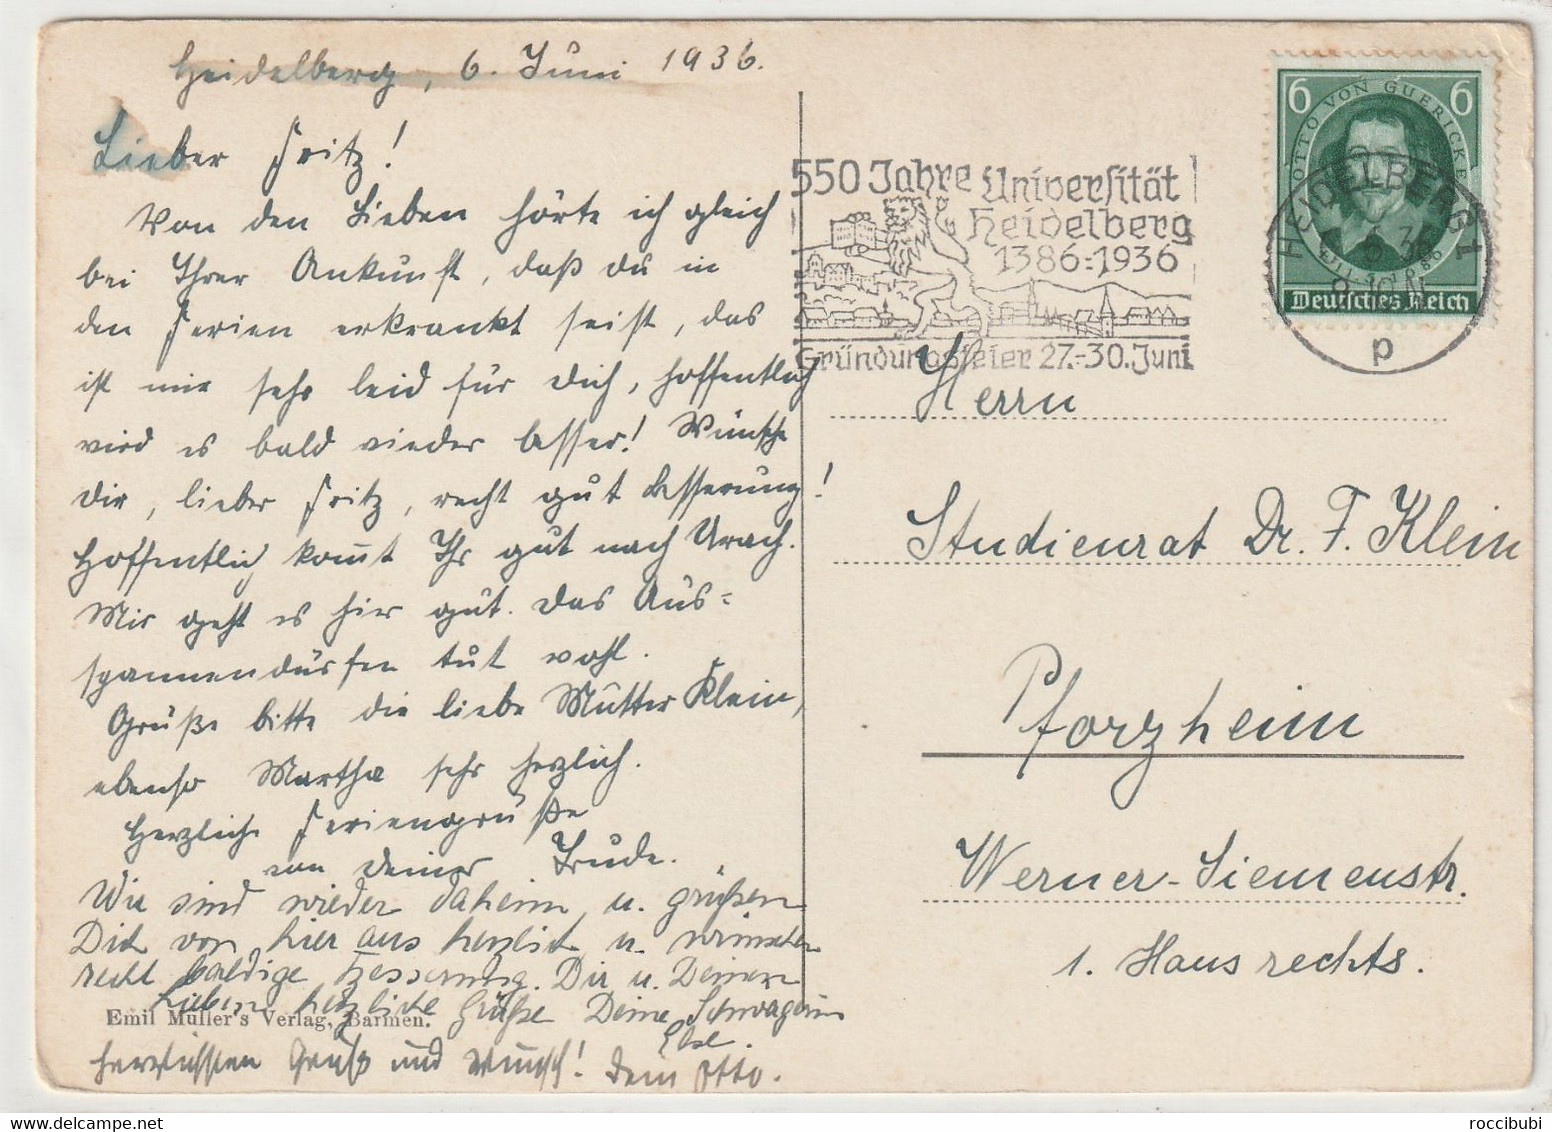 Heidelberg, 6. Juni 1936.
Lieber Fritz!
Von den Lieben hörte ich gleich
bei Ihrer Ankunft, daß du in
den Ferien erkrankt seist, das
ist mir sehr leid für Dich, hoffentlich
wird es bald wieder besser! Wünsche
Dir, lieber Fritz, recht gut Besserung!
Hoffentlich kom̅t Ihr gut nach Urach.
Mir geht es hier gut. Das Aus=
spannendürfen tut wohl.
Grüße bitte die liebe Mutter Klein,
ebenso Martha sehr herzlich.
Herzliche Feriengrüße
von Deiner Trude.
Wir sind wieder daheim u. grüßen
Dich von hier aus herzlich u. wünschen
recht baldige Besserung. Dir u. Deinen
Lieben herzliche Grüße Deine Schwägerin
Else.
Emil Müller's Verlag, Barmen.
herzlichsten Gruß und Wunsch! Dein Otto.
550 Jahre Universität
Heidelberg
1386-1936
Gründungsfeier 27.-30. Juni
6 6
OTTO VON GUERICKE
11.5.1686
Deutsches Reich
HEIDELBERG 1
6.36
p
Herrn
Studienrat Dr. F. Klein
Pforzheim
Werner-Siemenstr.
1. Haus rechts.
roccibubi